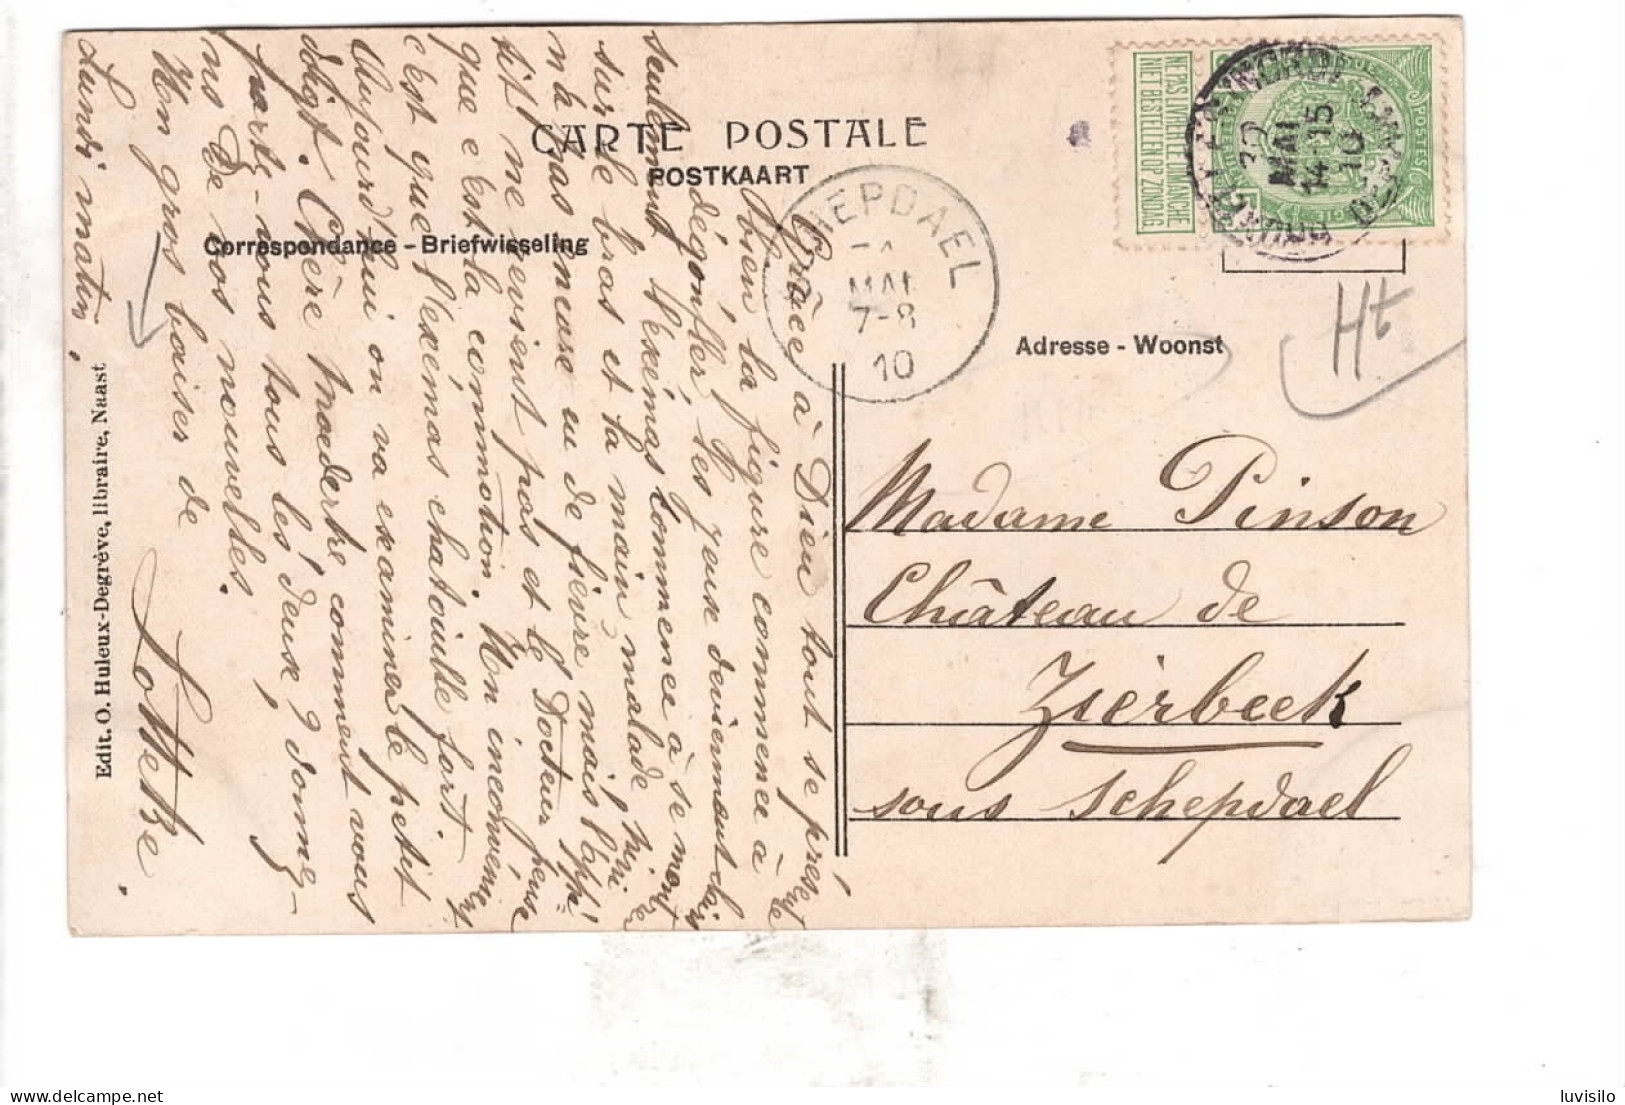 CARTE POSTALE
POSTKAART
Correspondance - Briefwisseling
Adresse - Woonst
NE PAS LIVRER LE DIMANCHE
NIET BESTELLEN OP ZONDAG
POSTES
30
MAI
14-15
10
DEPART
SCHEPDAEL
MAI
7-8
10
Ht
Madame Pinson
Château de
Zierbeek
sous Schepdael
Grâce à Dieu tout se présente
bien la figure commence à
dégonfler, les yeux deviennent clairs
seulement l'exémas commence à se montrer
sur le bras et la main malade, hier
n'a pas même eu de fièvre mais l'appé-
tit ne revient pas et le Docteur pense
que c'est la commotion. Un inconvénient
c'est que l'exémas chatouille fort
Aujourd'hui on va examiner le petit
doigt. Chère moederke, comment vous
portez-vous tous les deux, donnez-
nous de vos nouvelles.
Un gros baiser de
Lotteke
Lundi matin.
Edit. O. Huleux-Degrève, libraire, Naast
luvisilo
delcampe.net